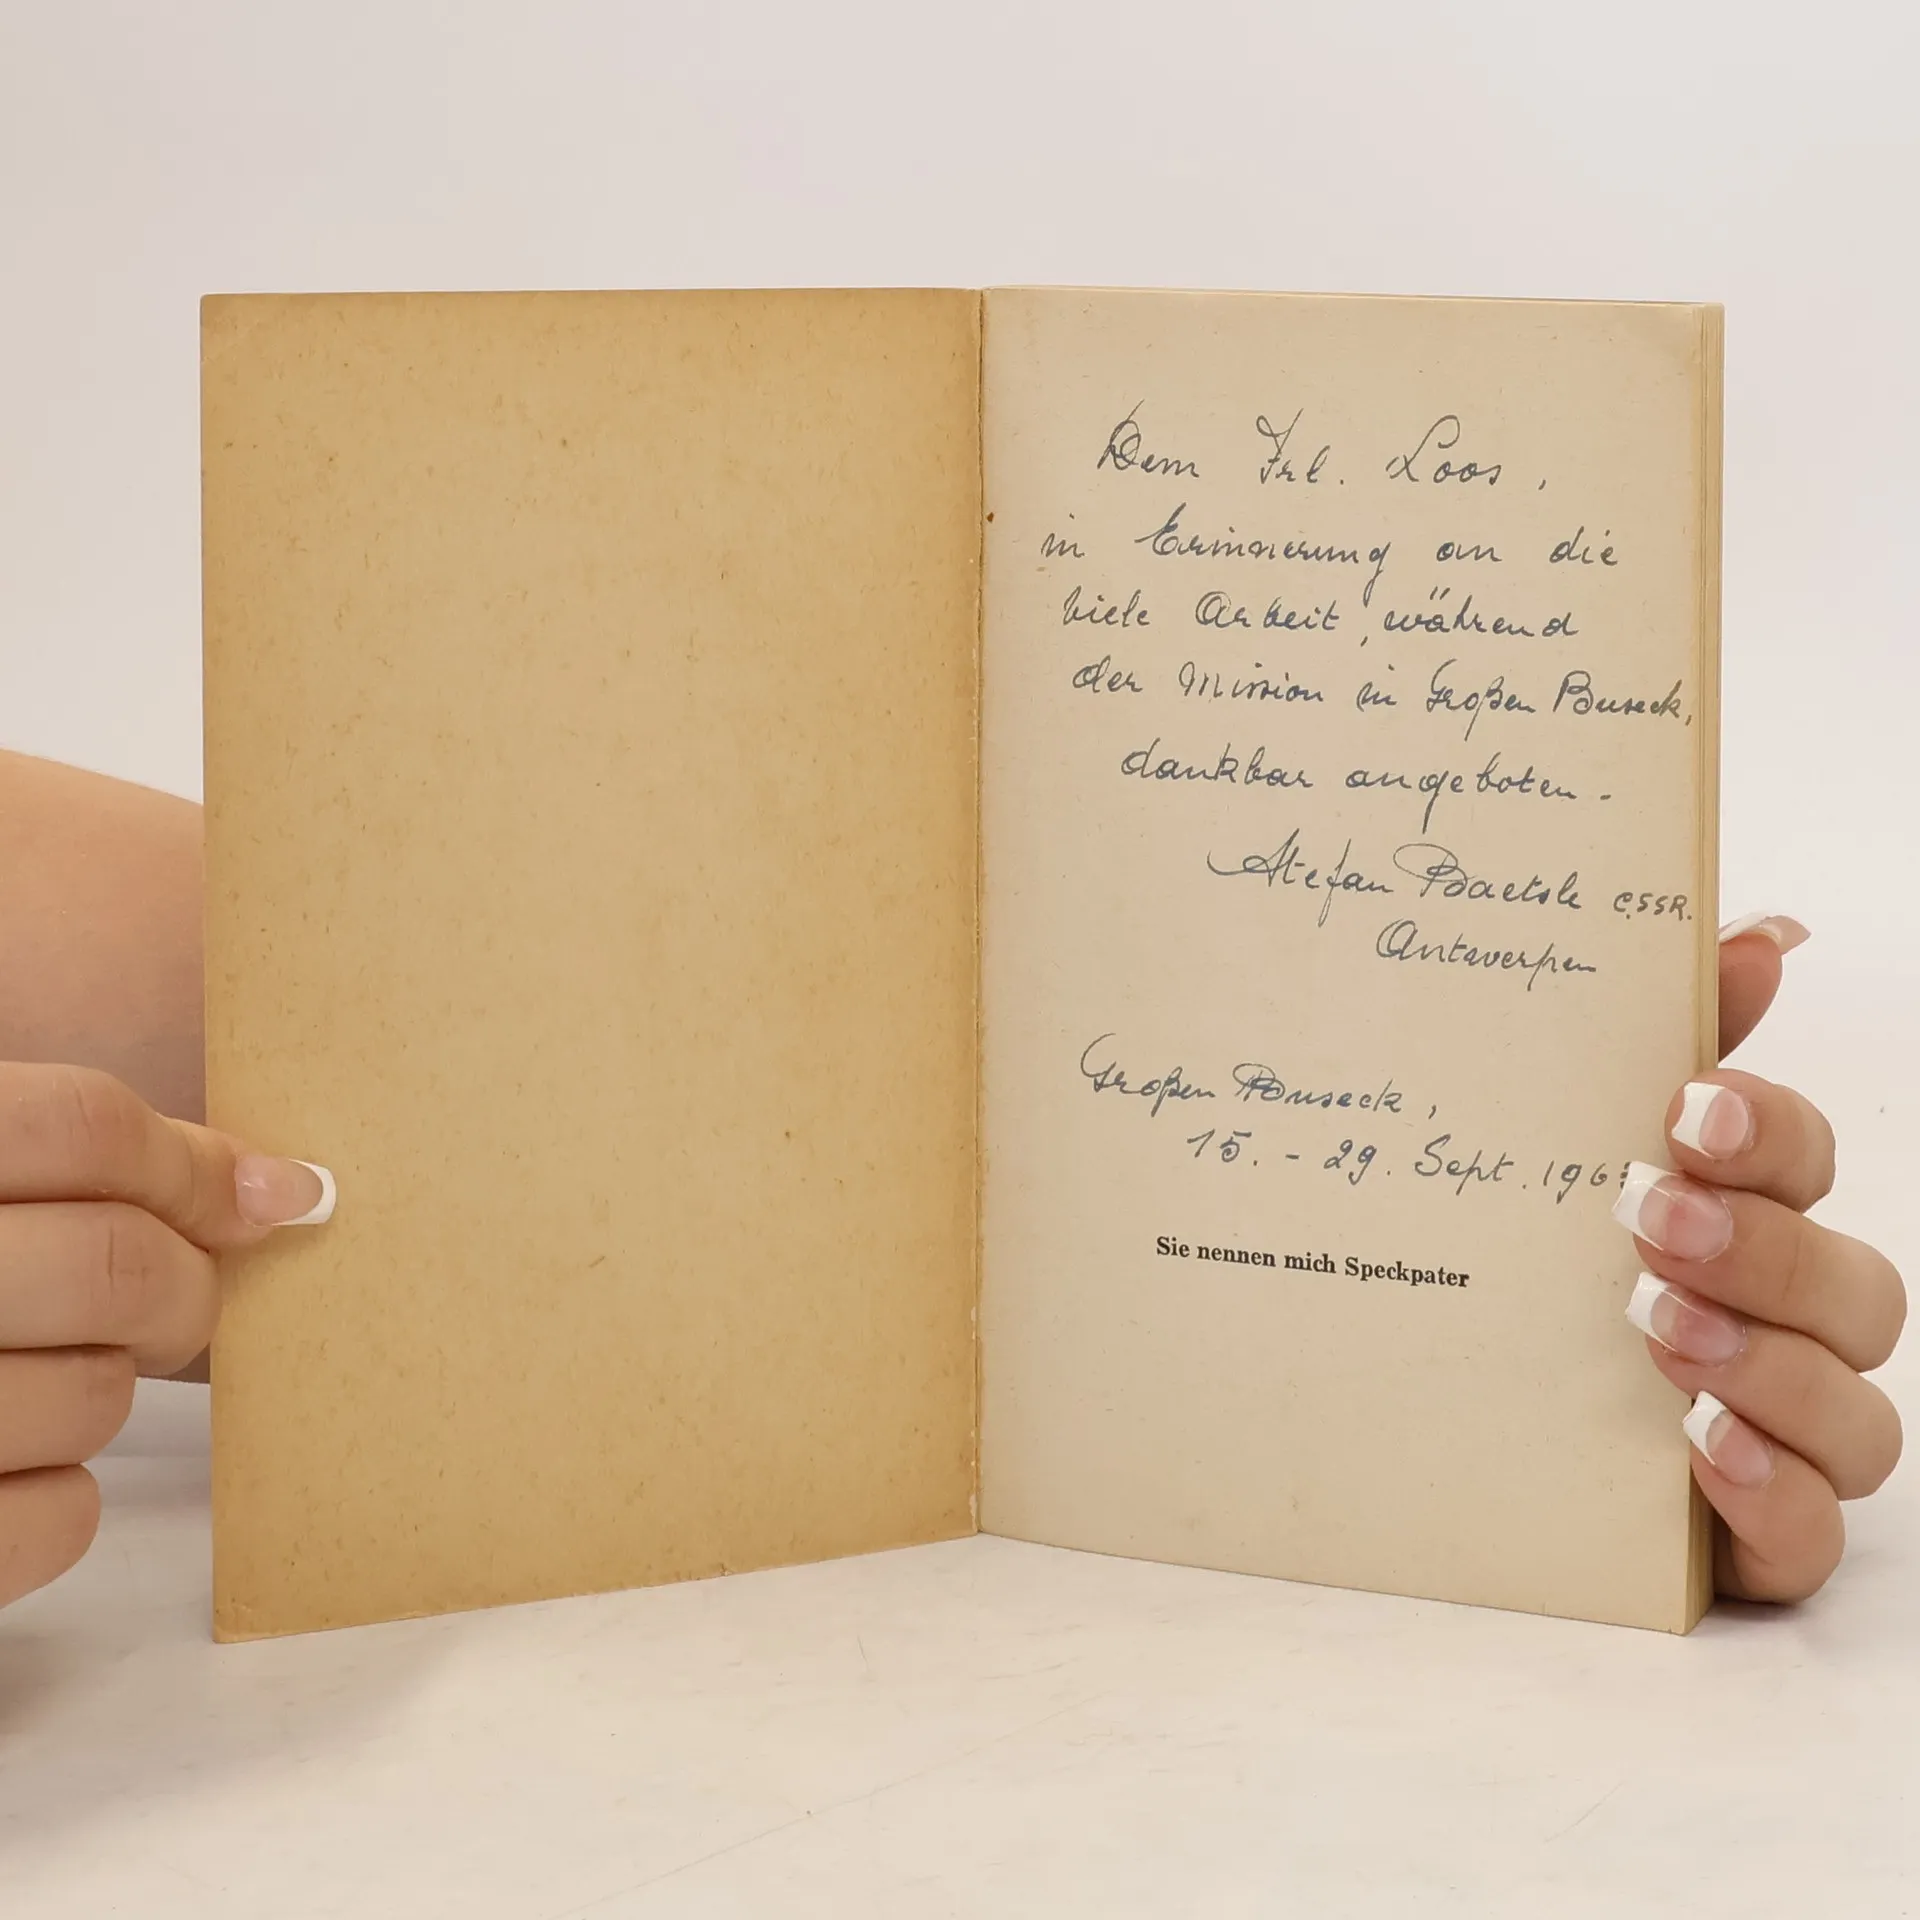 Dem Frl. Loos,
in Erinnerung an die
viele Arbeit, während
der Mission in Großen Buseck,
dankbar angeboten -
Stefan Baetsle C.SS.R.
Antwerpen
Großen Buseck,
15. - 29. Sept. 196
Sie nennen mich Speckpater